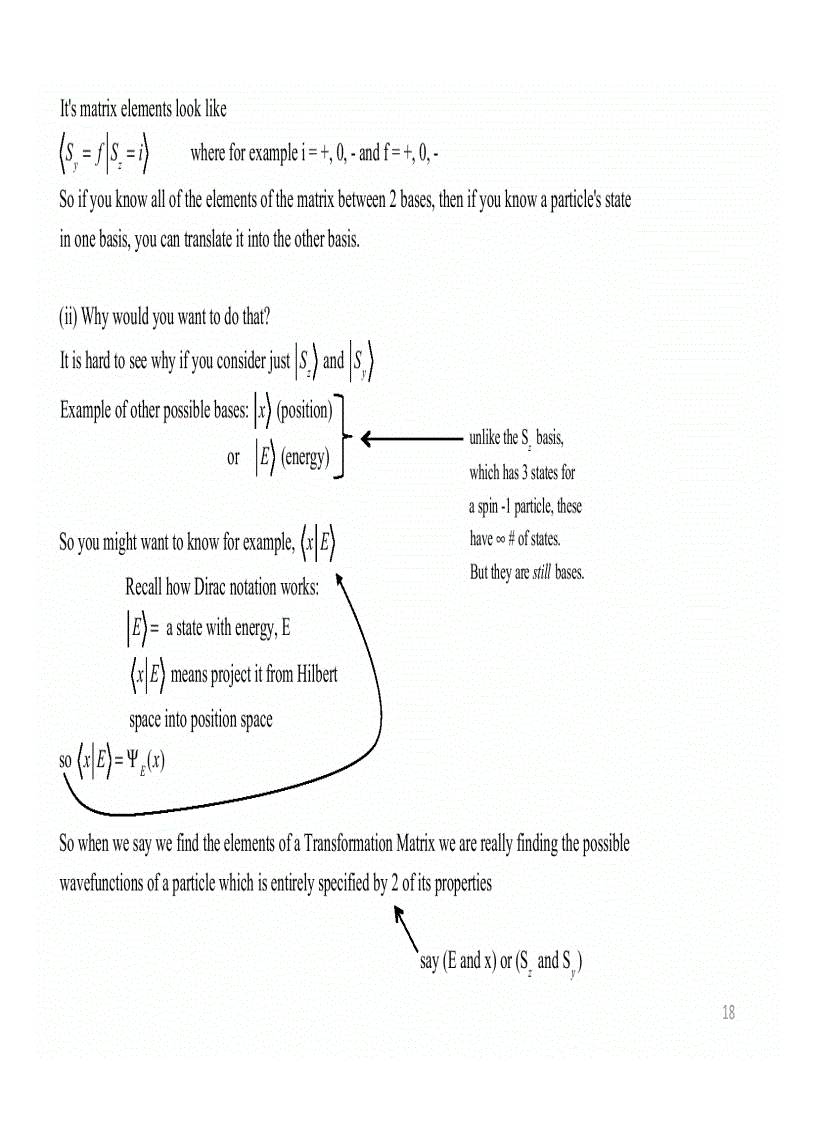 It's matrix elements look like
⟨S_y = f|S_z = i⟩ where for example i = +, 0, - and f = +, 0, -
So if you know all of the elements of the matrix between 2 bases, then if you know a particle's state
in one basis, you can translate it into the other basis.
(ii) Why would you want to do that?
It is hard to see why if you consider just |S_z⟩ and |S_y⟩
Example of other possible bases: |x⟩ (position)
or |E⟩ (energy)
unlike the S_z basis,
which has 3 states for
a spin -1 particle, these
have ∞ # of states.
But they are still bases.
So you might want to know for example, ⟨x|E⟩
Recall how Dirac notation works:
|E⟩ = a state with energy, E
⟨x|E⟩ means project it from Hilbert
space into position space
so ⟨x|E⟩ = Ψ_E(x)
So when we say we find the elements of a Transformation Matrix we are really finding the possible
wavefunctions of a particle which is entirely specified by 2 of its properties
say (E and x) or (S_z and S_y)
18